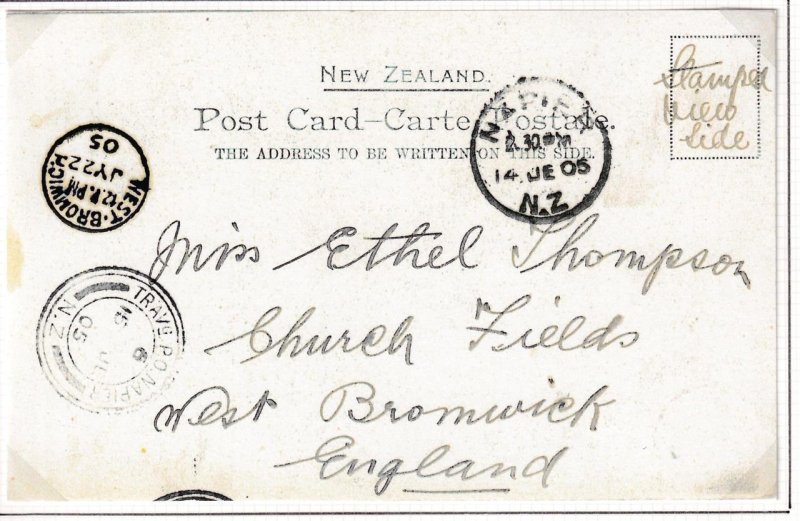 NEW ZEALAND.
Post Card–Carte Postale.
THE ADDRESS TO BE WRITTEN ON THIS SIDE.
Stamped
View
side
NAPIER
2.30 PM
14 JE 05
N.Z
WEST-BROMWICH
12. PM
JY 22
05
TRAVG. P.O. NAPIER
N.Z
05
Miss Ethel Thompson
Church Fields
West Bromwick
England